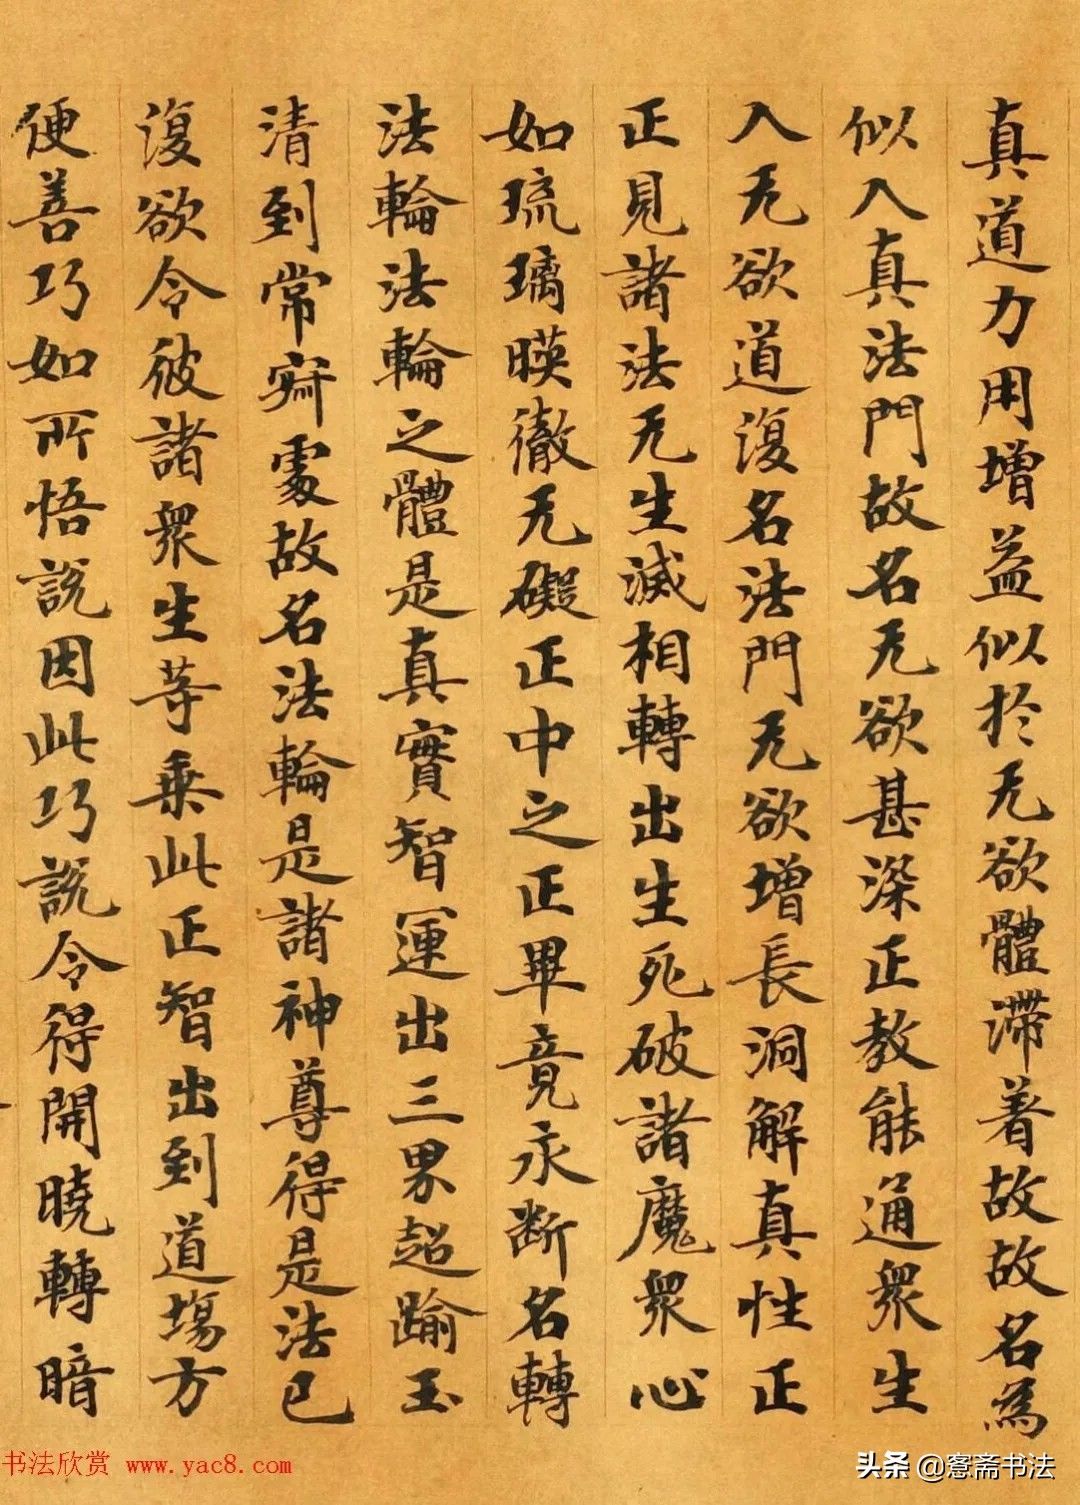 真道力用增益似於无欲體滯着故故名為
似入真法門故名无欲甚深正教能通眾生
入无欲道復名法門无欲增長洞解真性正
正見諸法无生滅相轉出生死破諸魔眾心
如琉璃暎徹无礙正中之正畢竟永斷名轉
法輪法輪之體是真實智運出三界超踰玉
清到常寂處故名法輪是諸神尊得是法已
復欲令彼諸眾生等乗此正智出到道場方
便善巧如所悟說因此巧說令得開曉轉暗
书法欣赏 www.yac8.com
头条 @窓斋书法